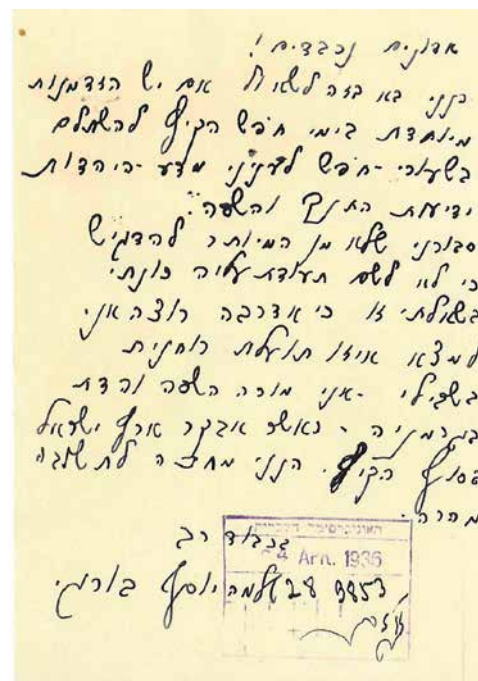 אדונים נכבדים!
הנני בא בזה לשאול אם יש הזדמנות
מיוחדת בימי חפש הקיץ להשתלם
בשעורי-חפש לעניני מדע-היהדות
ידיעת התנך והשפה.
סבורני שלא מן המיותר להדגיש
כי לא לשם תעודת עליה כונתי
בשאלתי זו כי אדרבה רוצה אני
למצא איזו תועלת רוחנית
בשבילי - אני מורה השפה והדת
בגרמניה - כאשר אבקר ארץ ישראל
בסוף הקיץ. הנני מחכה לתשובה
מהרה.
האוניברסיטה העברית
בכבוד רב
Apr. 1936
שלמה יוסף בורג
28